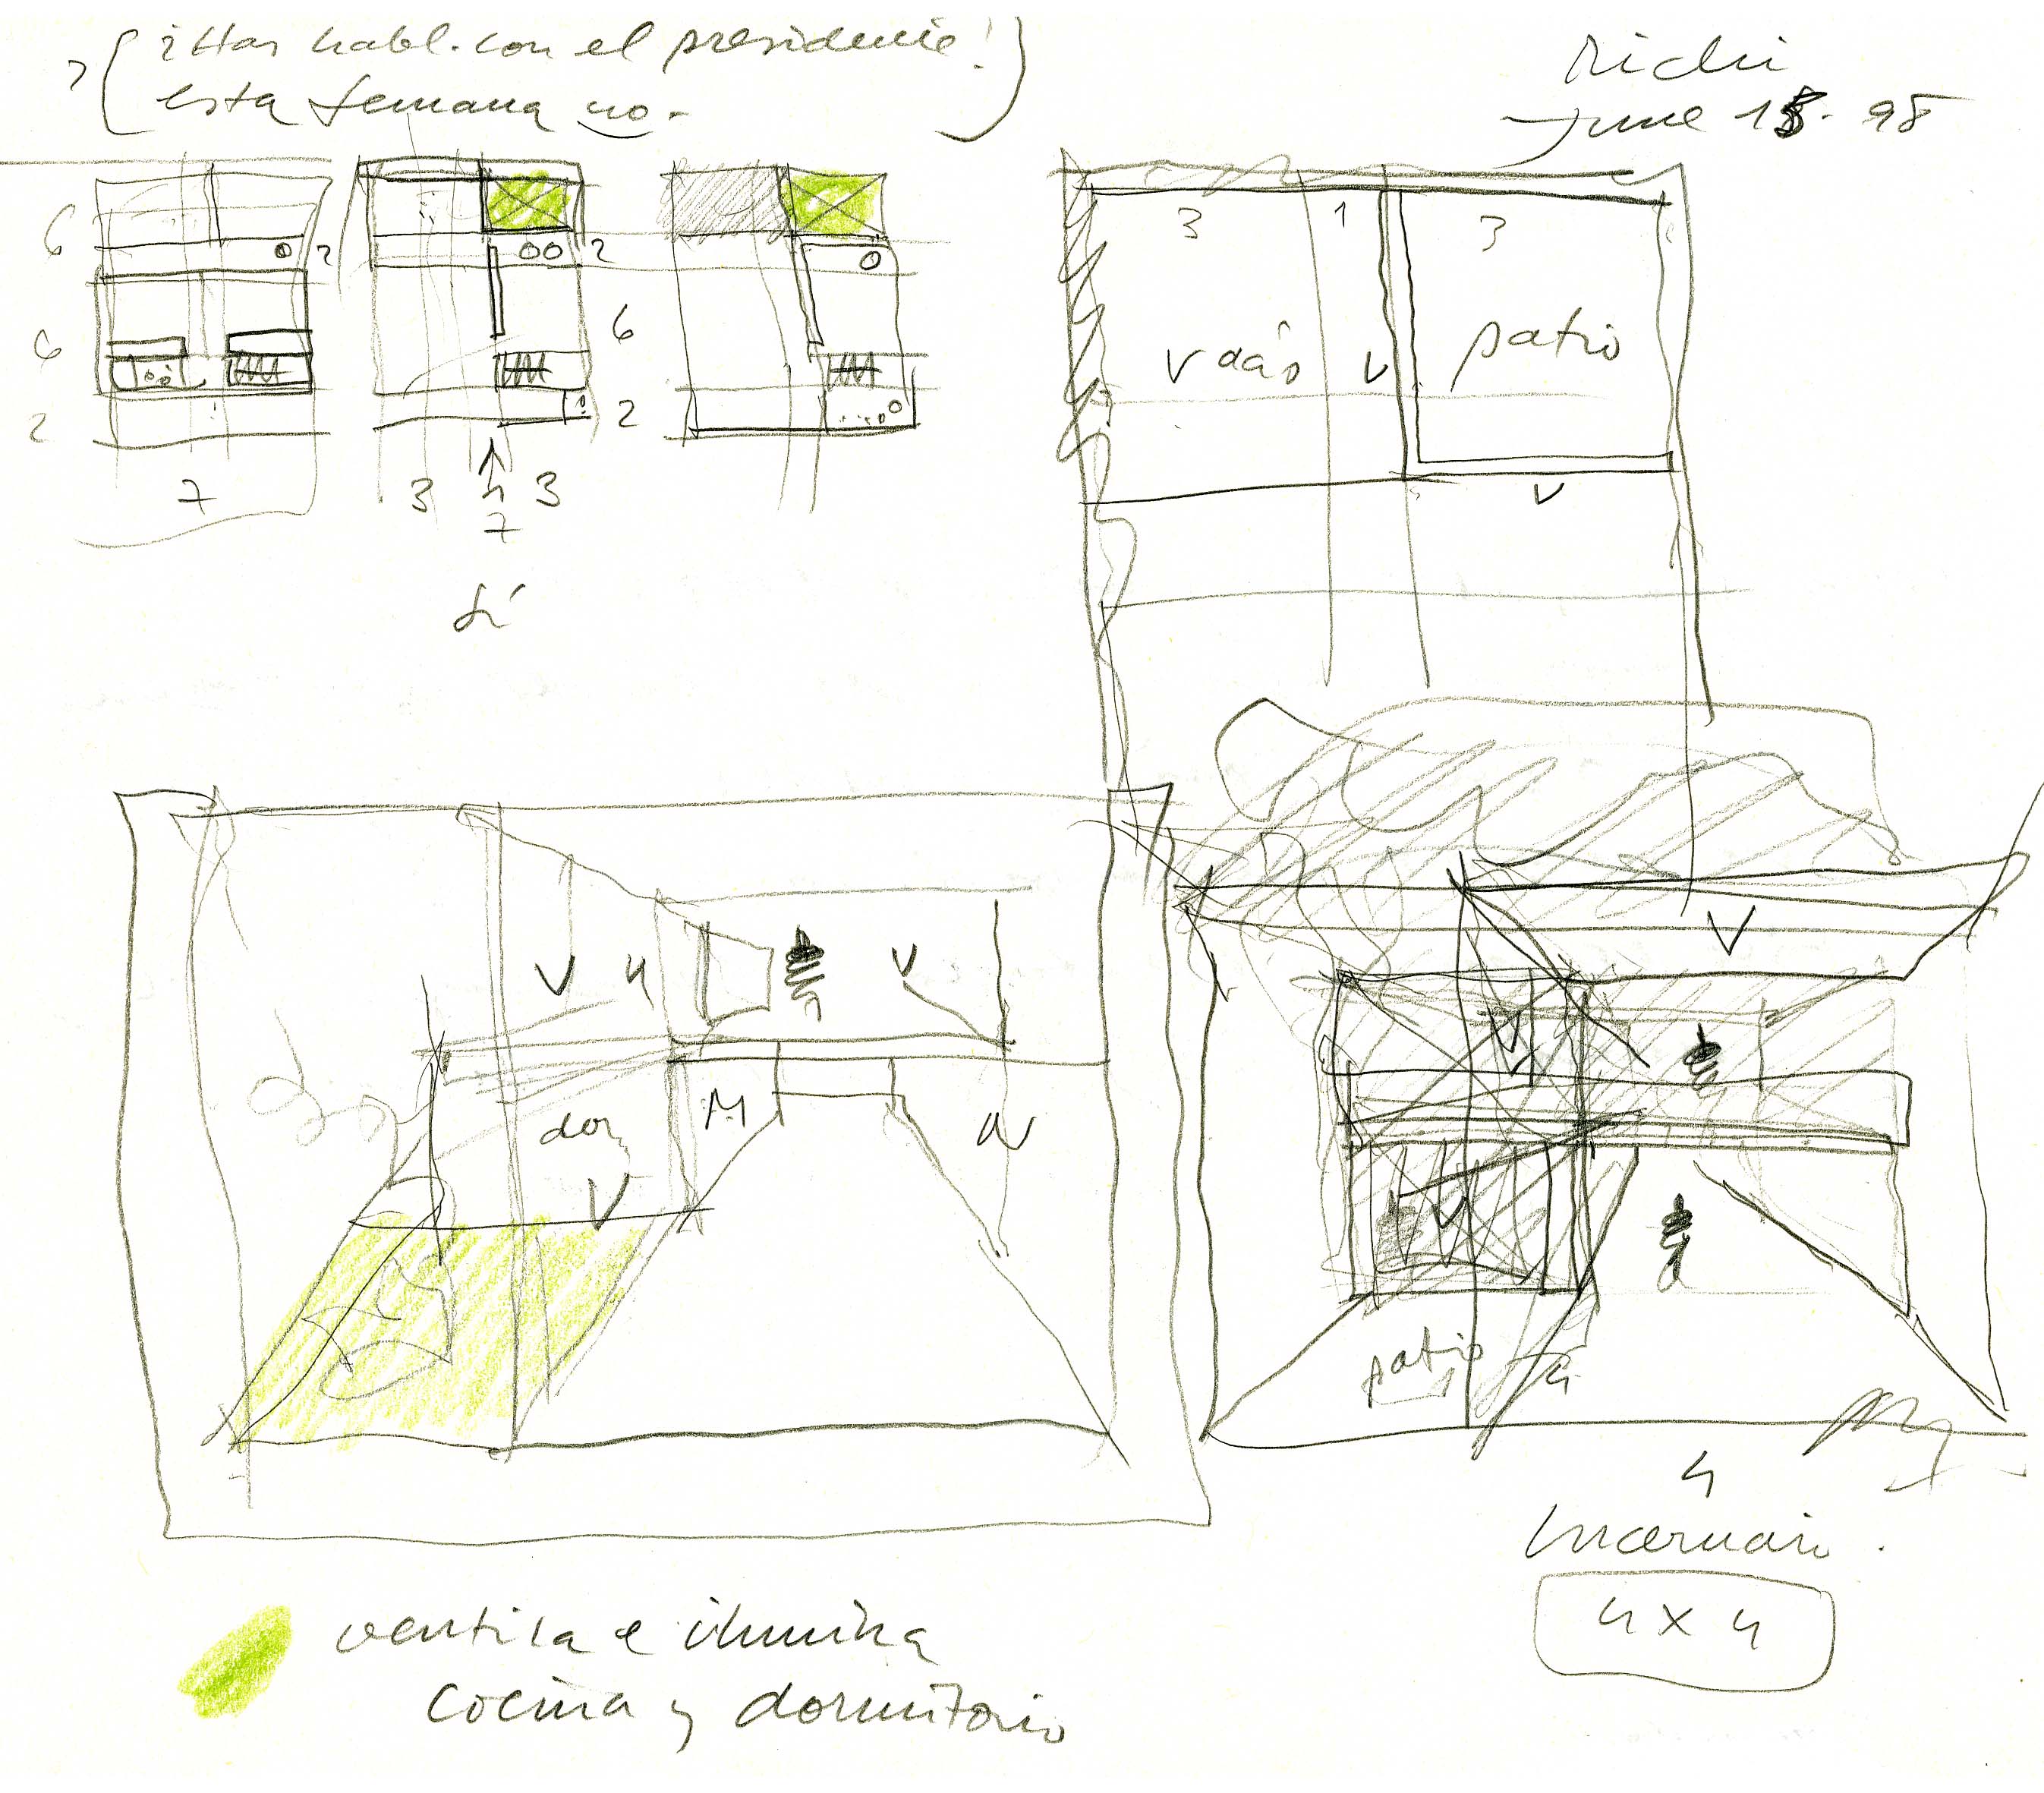 ¿Has habl. con el presidente!
esta semana no-
Richi
June 15. 98
6
2
6
2
7
2
6
2
3
3
7
sí
3 1 3
patio
v
v
v
v 4
v
dor
M
v
v
v
v
patio
4
4
4 x 4
ventila e ilumina
cocina y dormitorio